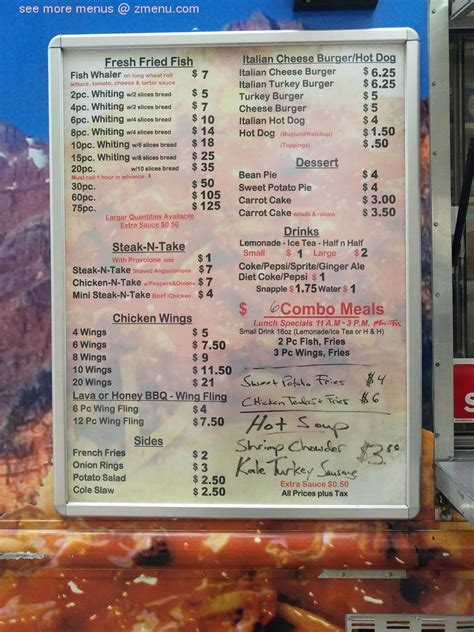 see more menus @ zmenu.com
Fresh Fried Fish
Fish Whaler on long wheat roll $ 7
lettuce, tomato, cheese & tarter sauce
2pc. Whiting w/2 slices bread $ 5
4pc. Whiting w/2 slices bread $ 7
6pc. Whiting w/4 slices bread $ 10
8pc. Whiting w/4 slices bread $ 14
10pc. Whiting w/6 slices bread $ 18
15pc. Whiting w/8 slices bread $ 25
20pc. w/10 slices bread $ 35
Must call 1 hour in advance
30pc. $ 50
60pc. $ 105
75pc. $ 125
Larger Quantities Available
Extra Sauce $0.50
Steak-N-Take
With Provolone add $ 1
Steak-N-Take Shaved Angus/onions $ 7
Chicken-N-Take w/Peppers&Onions $ 7
Mini Steak-N-Take Beef /Chicken $ 4
Chicken Wings
4 Wings $ 5
6 Wings $ 7.50
8 Wings $ 9
10 Wings $ 11.50
20 Wings $ 21
Lava or Honey BBQ - Wing Fling
6 Pc Wing Fling $ 4
12 Pc Wing Fling $ 7.50
Sides
French Fries $ 2
Onion Rings $ 3
Potato Salad $ 2.50
Cole Slaw $ 2.50
Italian Cheese Burger/Hot Dog
Italian Cheese Burger $ 6.25
Italian Turkey Burger $ 6.25
Turkey Burger $ 5
Cheese Burger $ 5
Italian Hot Dog $ 4
Hot Dog (Mustard/Ketchup) $ 1.50
(Toppings) $ .50
Dessert
Bean Pie $ 4
Sweet Potato Pie $ 4
Carrot Cake $ 3.00
Carrot Cake w/nuts & raisins $ 3.50
Drinks
Lemonade - Ice Tea - Half n Half
Small $ 1 Large $ 2
Coke/Pepsi/Sprite/Ginger Ale
Diet Coke/Pepsi $ 1
Snapple $ 1.75 Water $ 1
$ 6 Combo Meals
Lunch Specials 11 A.M - 3 P.M.
Small Drink 16oz (Lemonade/Ice Tea or H & H)
2 Pc Fish, Fries
3 Pc Wings, Fries
Sweet Potato Fries $4
Chicken Fries $6
Hot Soup
Shrimp Chowder $3.50
Kale Turkey Sausage
Extra Sauce $0.50
All Prices plus Tax